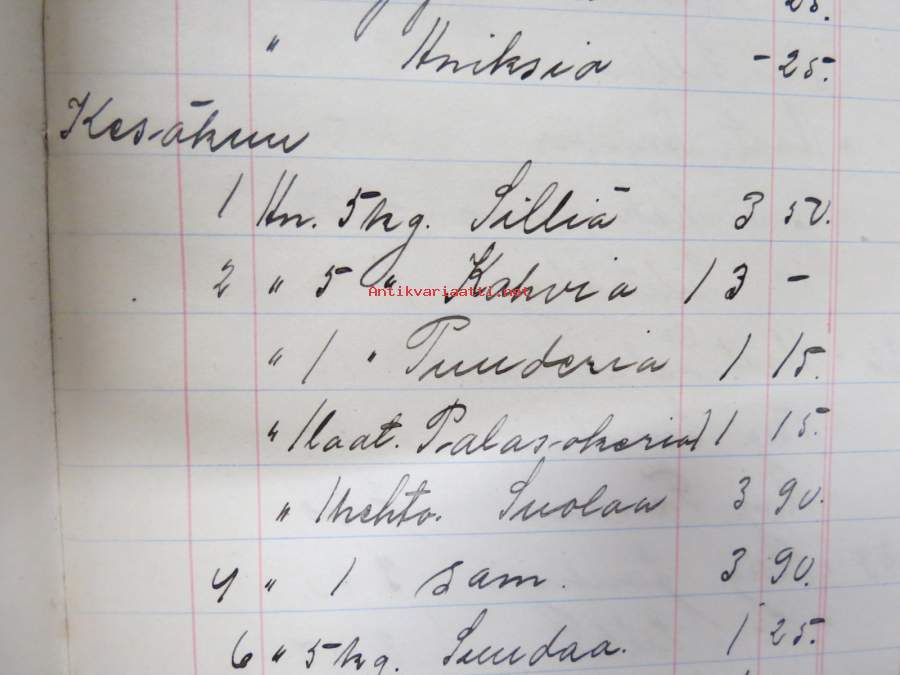 25.
" Uniksia - 25.
Kesäkuu
1 Hn. 5 kg. Silliä 3 50.
2 " 5 " Kahvia 13 -
Antikvariaatti.net
" 1 " Puuderia 1 15.
" 1 laat. Palasokeria 1 15.
" 1 hehto. Suolaa 3 90.
4 " 1 sam. 3 90.
6 " 5 kg. Suudaa. 1 25.